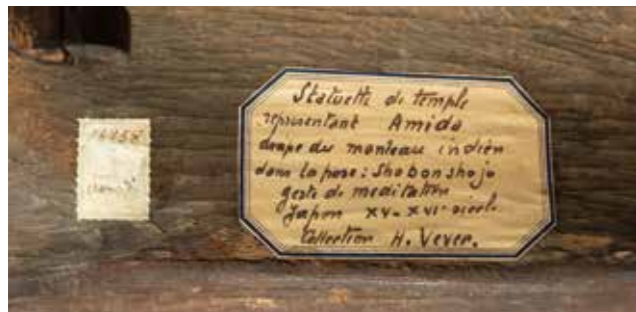 Statuette de temple
representant Amida
drapé du manteau indien
dans la pose: Shobonshojo
geste de meditation
Japon XV-XVI siècle
Collection H. Vever.